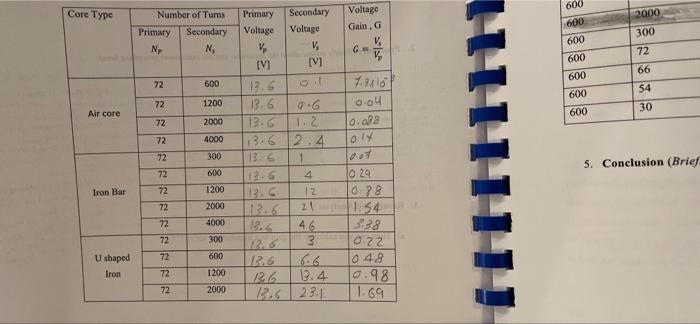 Core Type | Number of Turns | Primary Voltage Vp [V] | Secondary Voltage Vs [V] | Voltage Gain, G G = Vs/Vp
Primary Np | Secondary Ns
Air core
72 | 600 | 13.6 | 0.1 | 7.3x10⁻³
72 | 1200 | 13.6 | 0.6 | 0.04
72 | 2000 | 13.6 | 1.2 | 0.088
72 | 4000 | 13.6 | 2.4 | 0.17
Iron Bar
72 | 300 | 13.6 | 1 | 0.07
72 | 600 | 13.6 | 4 | 0.29
72 | 1200 | 13.6 | 12 | 0.88
72 | 2000 | 13.6 | 21 | 1.54
72 | 4000 | 13.6 | 46 | 3.38
U shaped Iron
72 | 300 | 13.6 | 3 | 0.22
72 | 600 | 13.6 | 6.6 | 0.48
72 | 1200 | 13.6 | 13.4 | 0.98
72 | 2000 | 13.6 | 23.1 | 1.69
600
600 | 2000
600 | 300
600 | 72
600 | 66
600 | 54
600 | 30
5. Conclusion (Brief